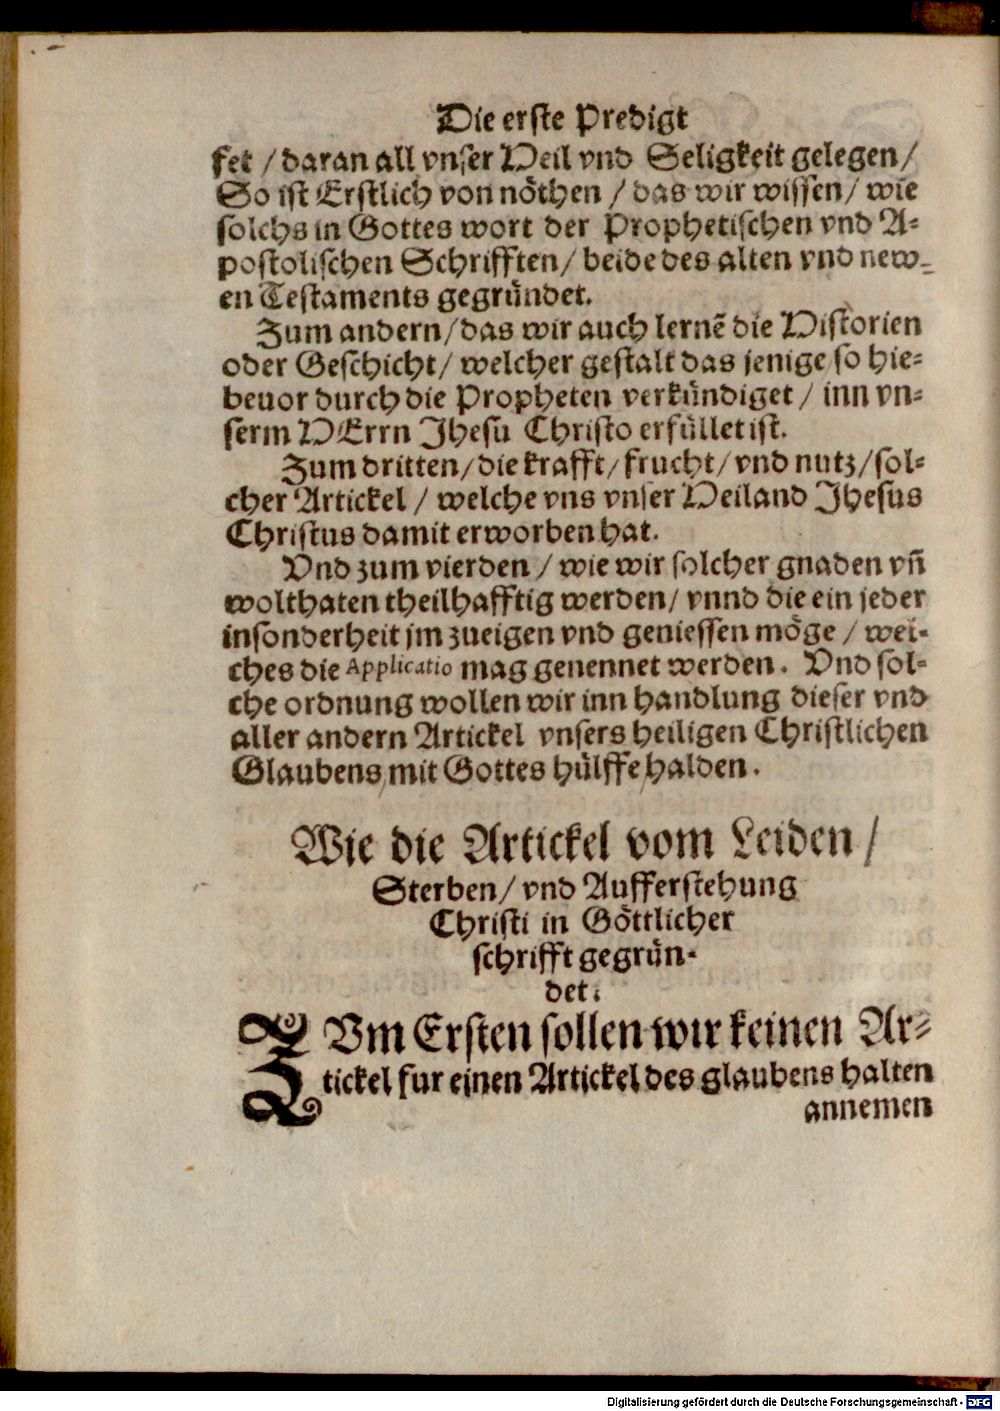 Die erste Predigt
set / daran all vnser Heil vnd Seligkeit gelegen /
So ist Erstlich von nöthen / das wir wissen / wie
solchs in Gottes wort der Prophetischen vnd A-
postolischen Schrifften / beide des alten vnd new-
en Testaments gegründet.
Zum andern / das wir auch lernē die Historien
oder Geschicht / welcher gestalt das jenige so hie-
beuor durch die Propheten verkündiget / inn vn-
serm HErrn Jhesu Christo erfüllet ist.
Zum dritten / die krafft / frucht / vnd nutz / sol-
cher Artickel / welche vns vnser Heiland Jhesus
Christus damit erworben hat.
Vnd zum vierden / wie wir solcher gnaden vñ
wolthaten theilhafftig werden / vnnd die ein jeder
insonderheit jm zueigen vnd geniessen möge / wel-
ches die Applicatio mag genennet werden. Vnd sol-
che ordnung wollen wir inn handlung dieser vnd
aller andern Artickel vnsers heiligen Christlichen
Glaubens / mit Gottes hülffe / halden.
Wie die Artickel vom Leiden /
Sterben / vnd Aufferstehung
Christi in Göttlicher
schrifft gegrün-
det:
ZVm Ersten sollen wir keinen Ar-
tickel fur einen Artickel des glaubens halten
annemen
Digitalisierung gefördert durch die Deutsche Forschungsgemeinschaft - DFG